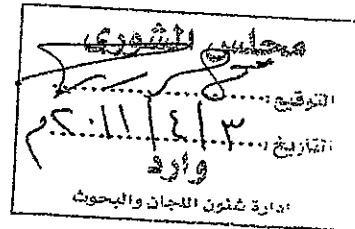 مجلس الشورى
التوقيع :
التاريخ : ٣ / ٤ / ٢٠١١م
وارد
ادارة شئون اللجان والبحوث